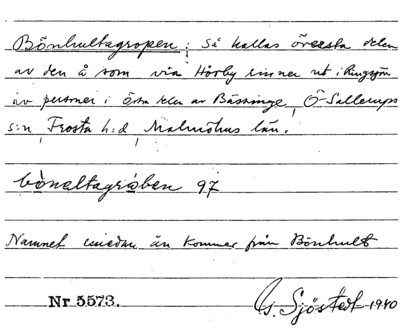 Bönhultagropen: Så kallas översta delen
av den å som via Hörby rinner ut i Ringsjön
av personer i östra delen av Bässinge, Ö. Sallerups
s:n, Frosta h:d, Malmöhus län.
97
Namnet emedan ån kommer från Bönhult
Nr 5573. G. Sjöstedt 1940